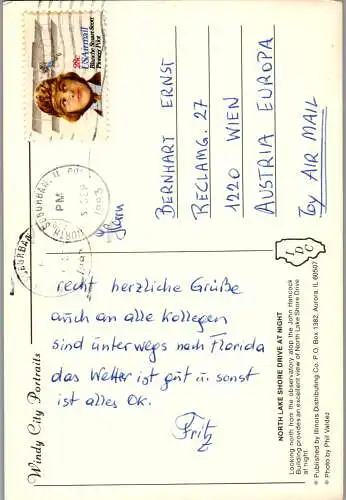 Windy City Portraits
recht herzliche Grüße
auch an alle Kollegen
sind unterwegs nach Florida
das Wetter ist gut u. sonst
ist alles OK.
Fritz
28c
USAirmail
Blanche Stuart Scott
Pioneer Pilot
SUBURBAN, IL
PM
5 SEP
1983
NORTH
Herrn
BERNHART ERNST
RECLAMG. 27
1220 WIEN
AUSTRIA EUROPA
by AIR MAIL
IDC
NORTH LAKE SHORE DRIVE AT NIGHT
Looking north from the observatory atop the John Hancock
Building provides an excellent view of North Lake Shore Drive
at night.
Published by Illinois Distributing Co. P.O. Box 1382, Aurora, IL 60507
Photo by Phil Valdez